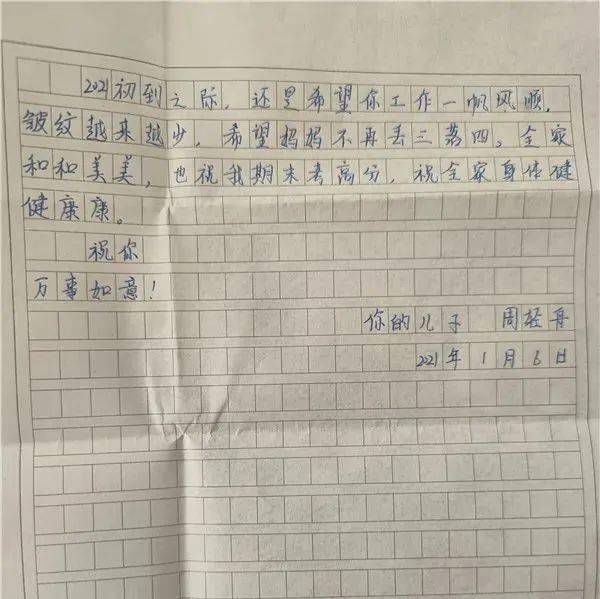 2021初到之际，还是希望你工作一帆风顺，
皱纹越来越少，希望妈妈不再丢三落四。全家
和和美美，也祝我期末考高分，祝全家身体健
健康康。
祝你
万事如意！
你的儿子 周轻舟
2021年1月6日